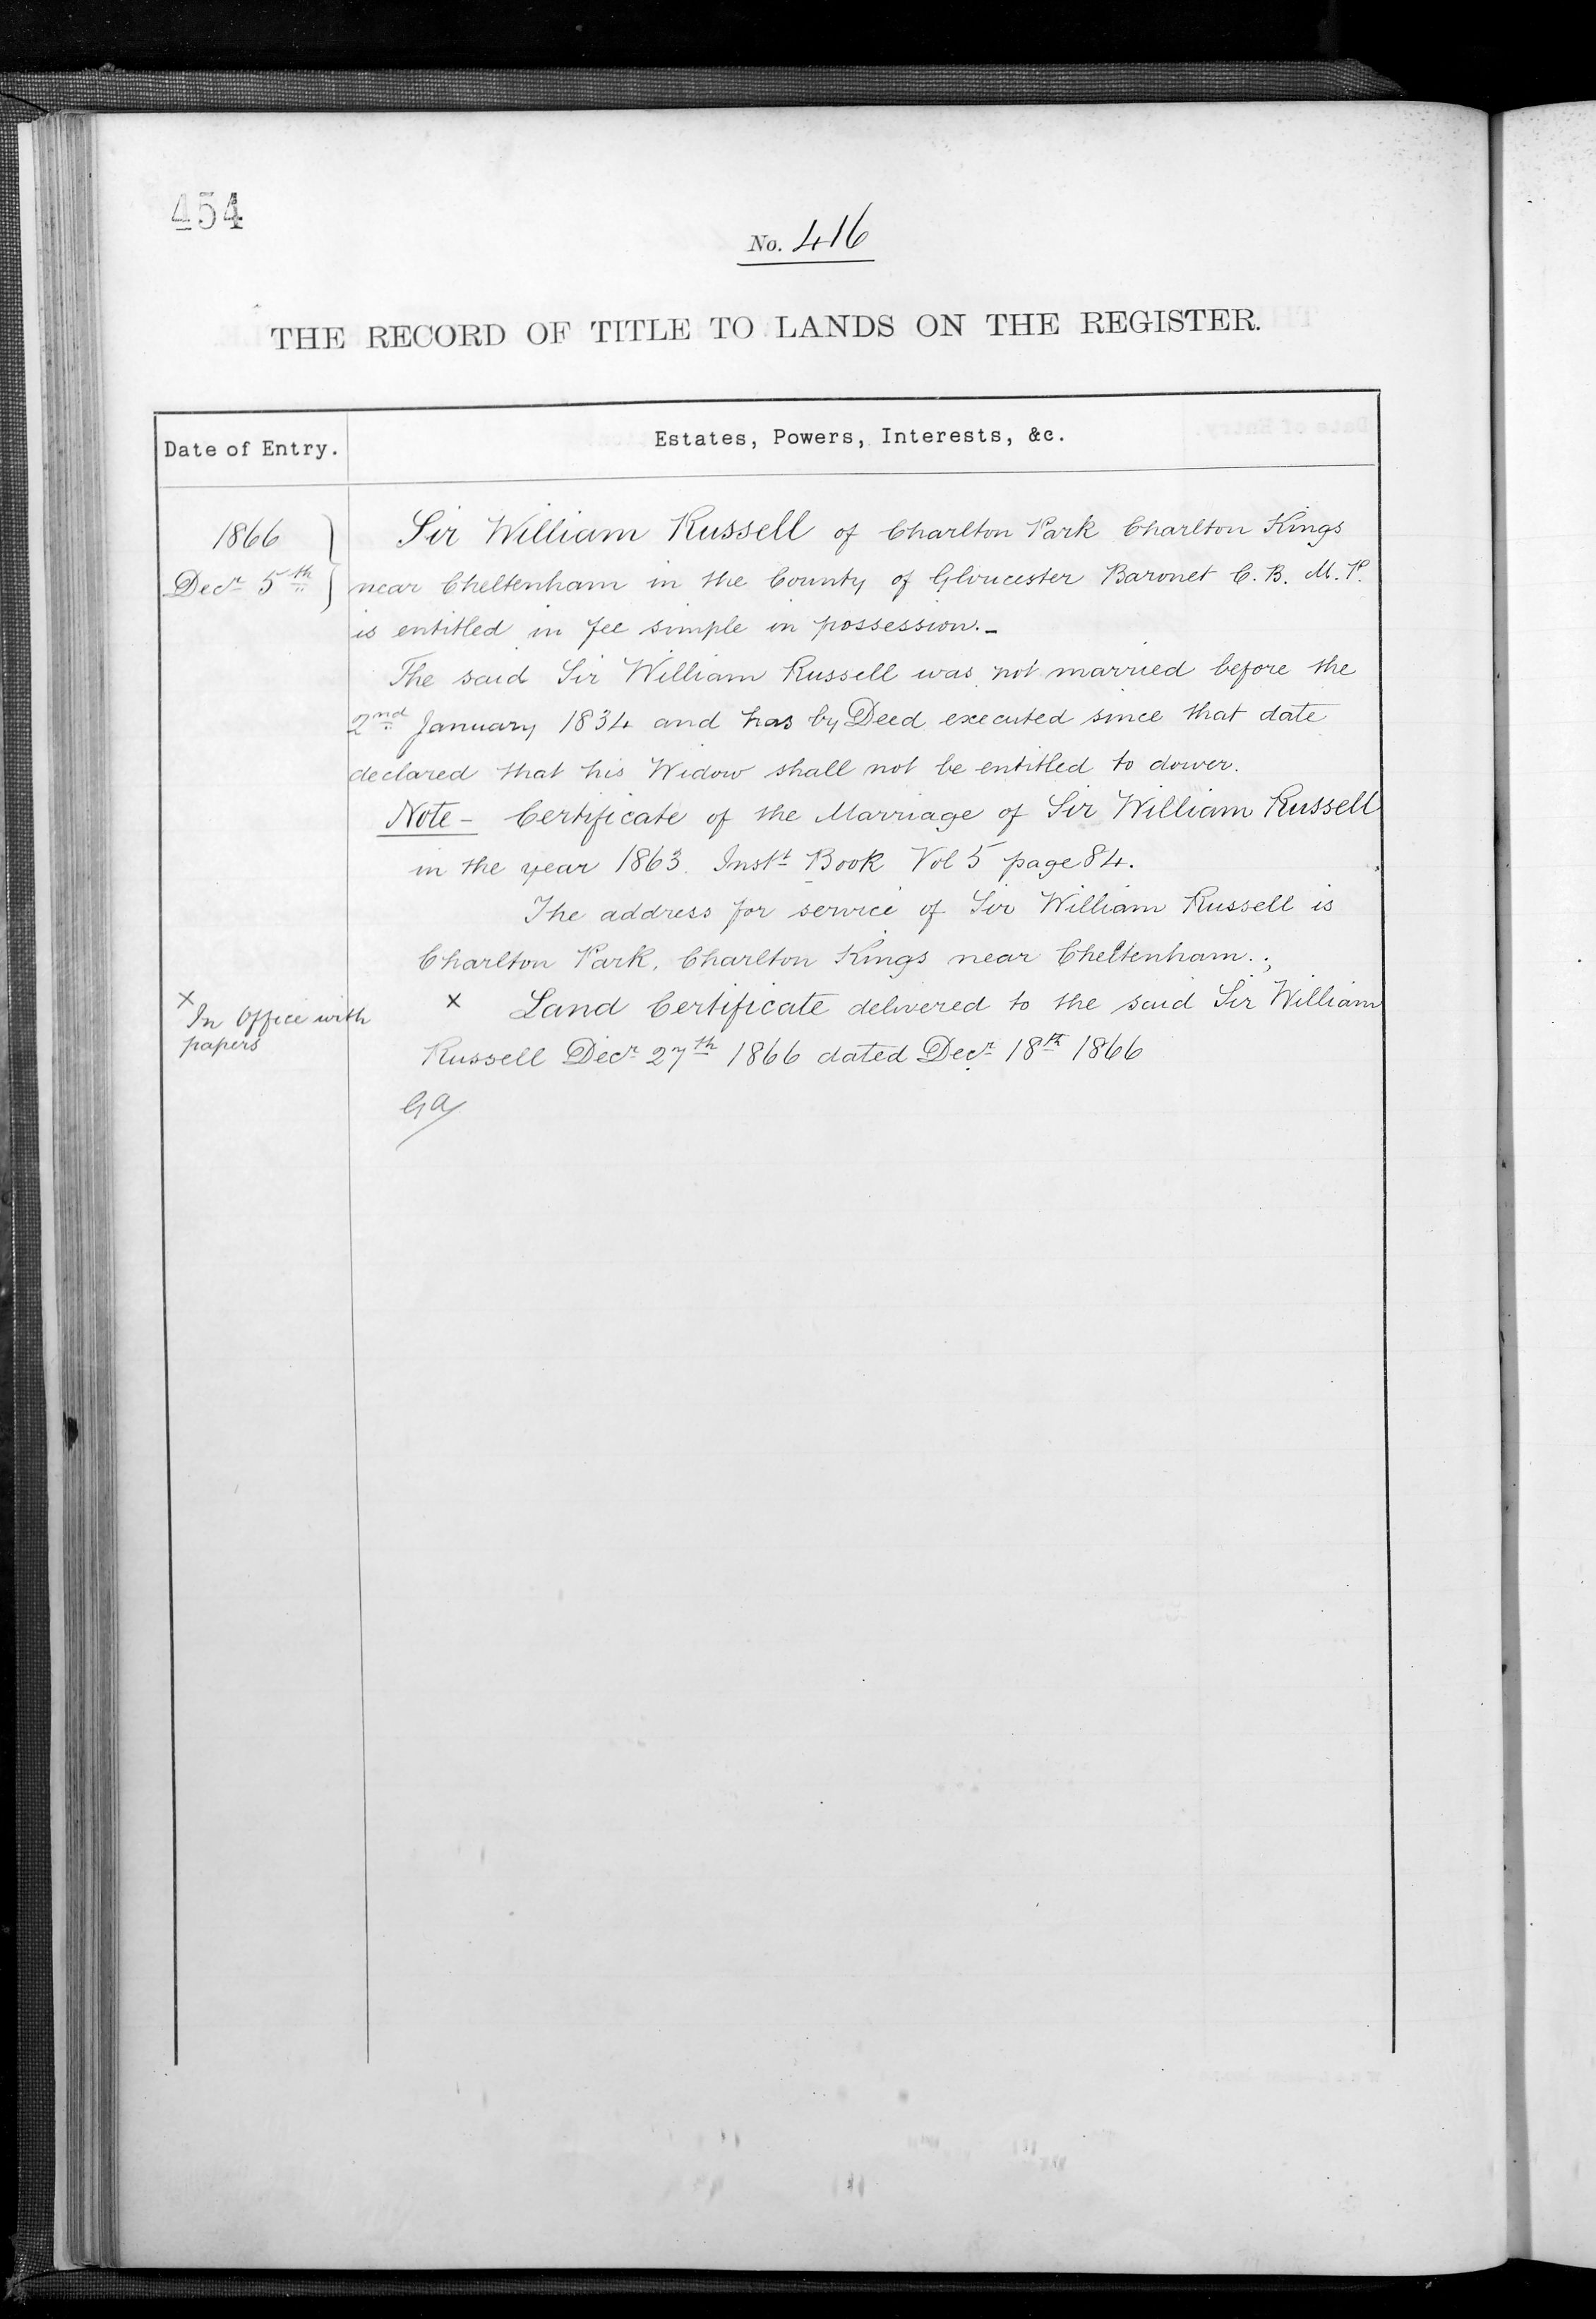 454
No. 416
THE RECORD OF TITLE TO LANDS ON THE REGISTER.
Date of Entry.
Estates, Powers, Interests, &c.
1866
Decr 5th
Sir William Russell of Charlton Park Charlton Kings
near Cheltenham in the County of Gloucester Baronet C. B. M. P.
is entitled in fee simple in possession.-
The said Sir William Russell was not married before the
2nd January 1834 and has by Deed executed since that date
declared that his Widow shall not be entitled to dower.
Note - Certificate of the Marriage of Sir William Russell
in the year 1863. Instt Book Vol 5 page 84.
The address for service of Sir William Russell is
Charlton Park, Charlton Kings near Cheltenham.
x In Office with
papers
x Land Certificate delivered to the said Sir William
Russell Decr 27th 1866 dated Decr 18th 1866